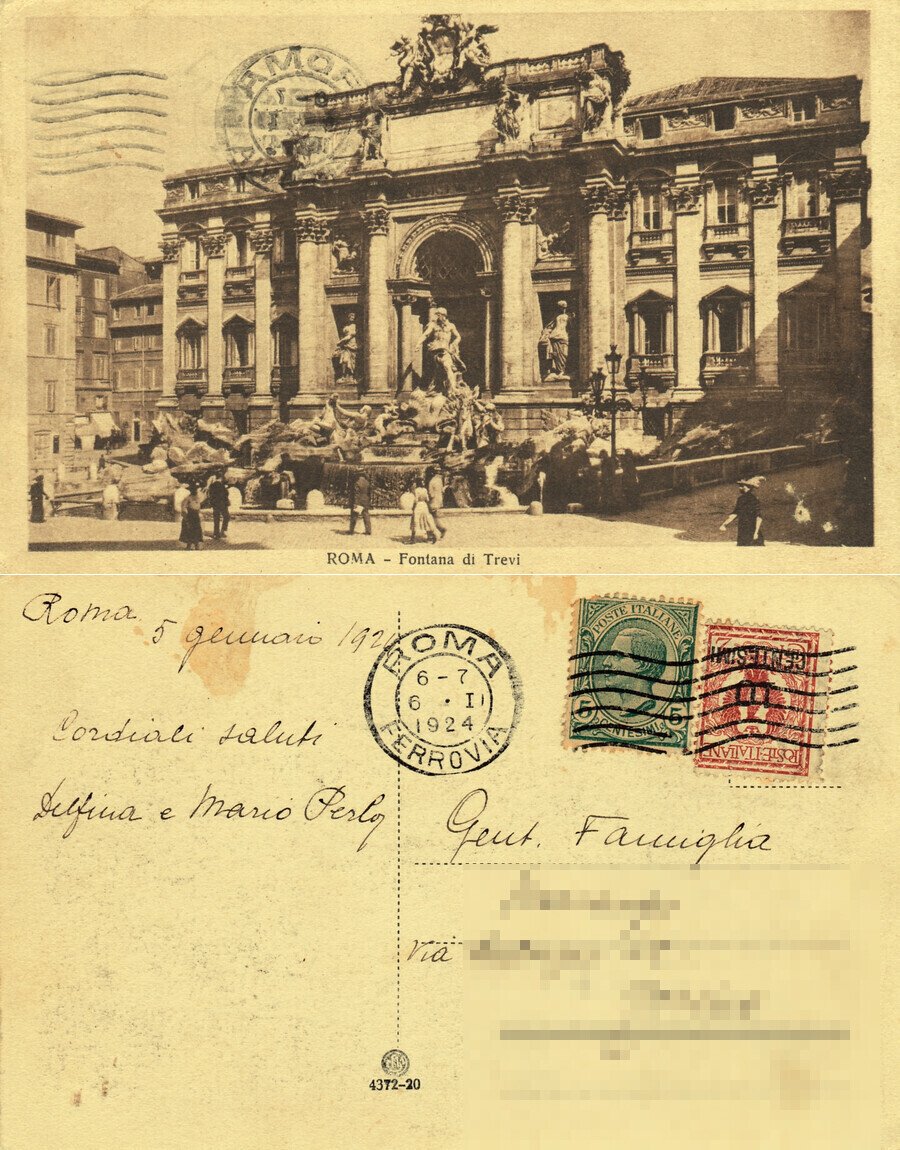 ROMA
ROMA – Fontana di Trevi
Roma
5 gennaio 192
ROMA
6-7
6 · I
1924
FERROVIA
POSTE ITALIANE
5 5
CENTESIMI
CENTESIMI
POSTE·ITALIANE
Cordiali saluti
Delfina e Mario Perlo
Gent. Famiglia
Via
4372-20